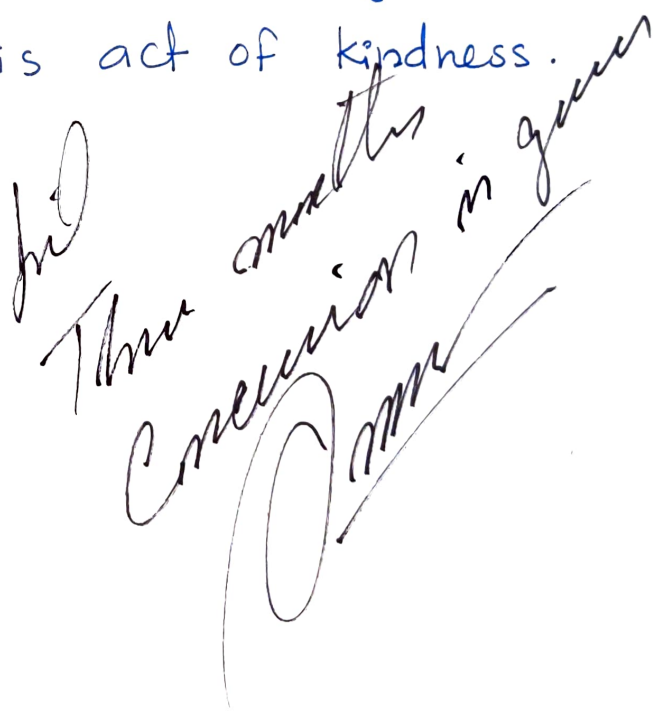 is act of kindness.
Three months
Concession is given